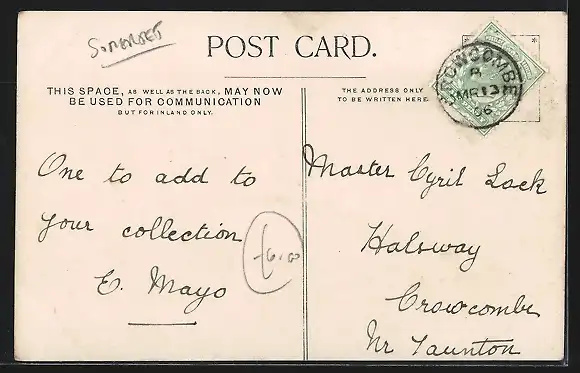 SOMERSET
POST CARD.
THIS SPACE, AS WELL AS THE BACK, MAY NOW
BE USED FOR COMMUNICATION
BUT FOR INLAND ONLY.
THE ADDRESS ONLY
TO BE WRITTEN HERE.
CROWCOMBE
A
MR 13
06
One to add to
your collection
E. Mayo
Master Cyril Lock
Halsway
Crowcombe
Nr Taunton